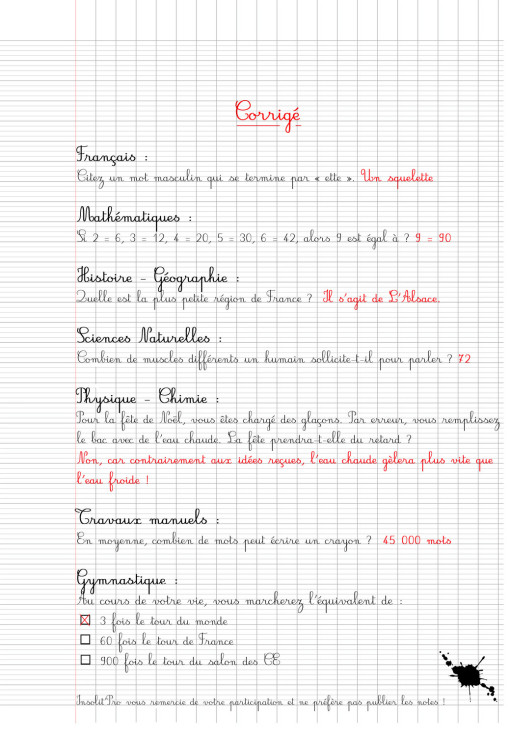 Corrigé
Français :
Citez un mot masculin qui se termine par « ette ». Un squelette
Mathématiques :
Si 2 = 6, 3 = 12, 4 = 20, 5 = 30, 6 = 42, alors 9 est égal à ? 9 = 90
Histoire - Géographie :
Quelle est la plus petite région de France ? Il s'agit de L'Alsace.
Sciences Naturelles :
Combien de muscles différents un humain sollicite-t-il pour parler ? 72
Physique - Chimie :
Pour la fête de Noël, vous êtes chargé des glaçons. Par erreur, vous remplissez
le bac avec de l'eau chaude. La fête prendra-t-elle du retard ?
Non, car contrairement aux idées reçues, l'eau chaude gèlera plus vite que
l'eau froide !
Travaux manuels :
En moyenne, combien de mots peut écrire un crayon ? 45 000 mots
Gymnastique :
Au cours de votre vie, vous marcherez l'équivalent de :
3 fois le tour du monde
60 fois le tour de France
900 fois le tour du salon des CE
Insolit'Pro vous remercie de votre participation et ne préfère pas publier les notes !